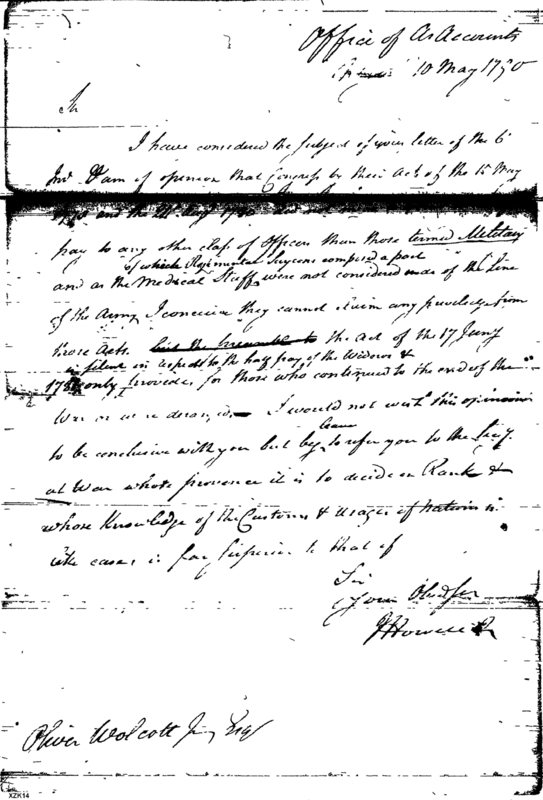 Office of As Accounts
10 May 1790
Sir
I have considered the subject of your letter of the 6
Inst & am of openion that Congress by their Act of the 15 May
and the 24 Aug 1780 did not
pay to any other class of Officers than those termed Military
of which Regimental Surgeons composed a part
and as the Medical Staff were not considered as of the Line
of the Army I conceive they cannot claim any priviledge from
those Acts. but the preamble to the Act of the 17 Jany
is silent in respect to the half pay of the Widows &
1781 only provides for those who continued to the end of the
War or were deranged I would not wish this opinion
to be conclusive with you but beg leave to refer you to the Secy
at War whose provence it is to decide on Rank &
whose Knowledge of the Customs & Usages of Nations in
like cases is far Superior to that of
Sir
Your Obed Ser
J Howell Jr
Oliver Wolcott Jun Esq
XZK14